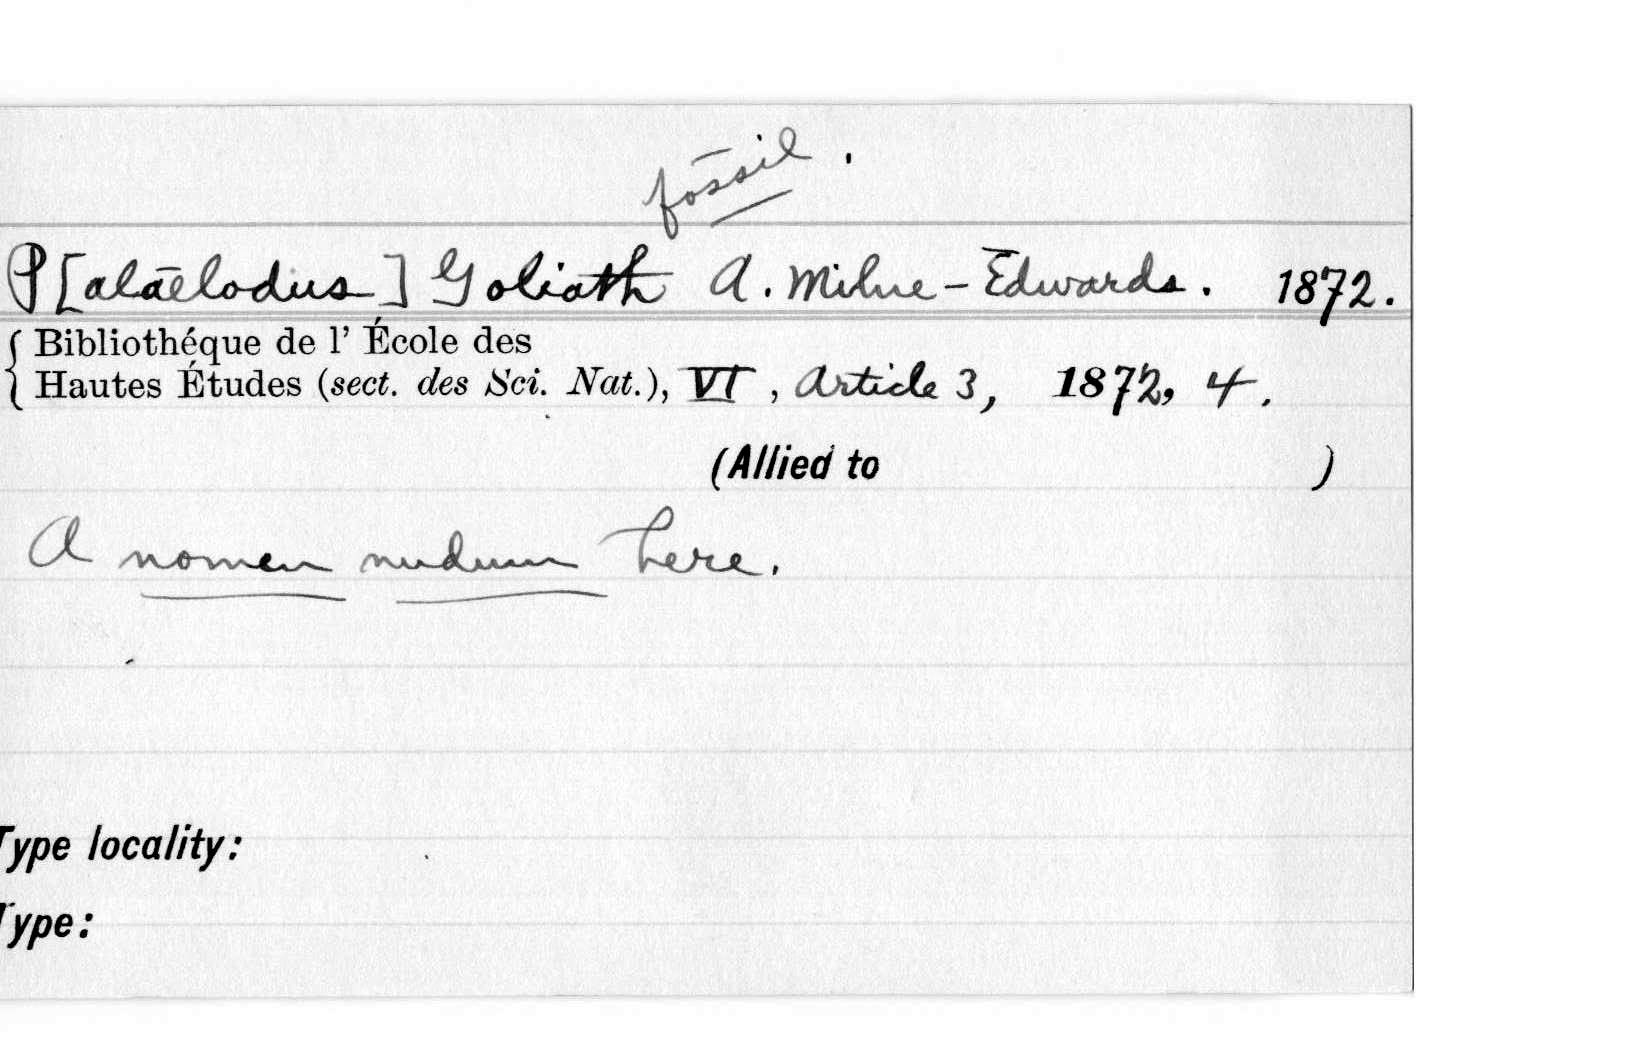 fossil.
P[alaelodus] Goliath A. Milne-Edwards. 1872.
Bibliothéque de l' École des
Hautes Études (sect. des Sci. Nat.), VI, Article 3, 1872, 4.
(Allied to )
A nomen nudum here.
Type locality:
Type: